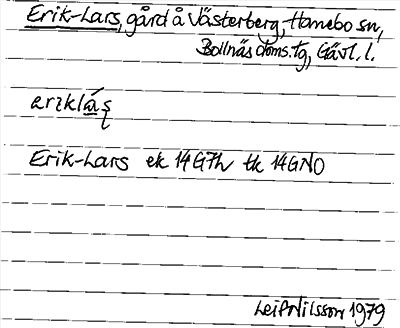 Erik-Lars, gård å Västerberg, Hanebo sn,
Bollnäs doms.tg, Gävl. l.
ärɩklás̨
Erik-Lars ek 14G7h tk 14GNO
Leif Nilsson 1979